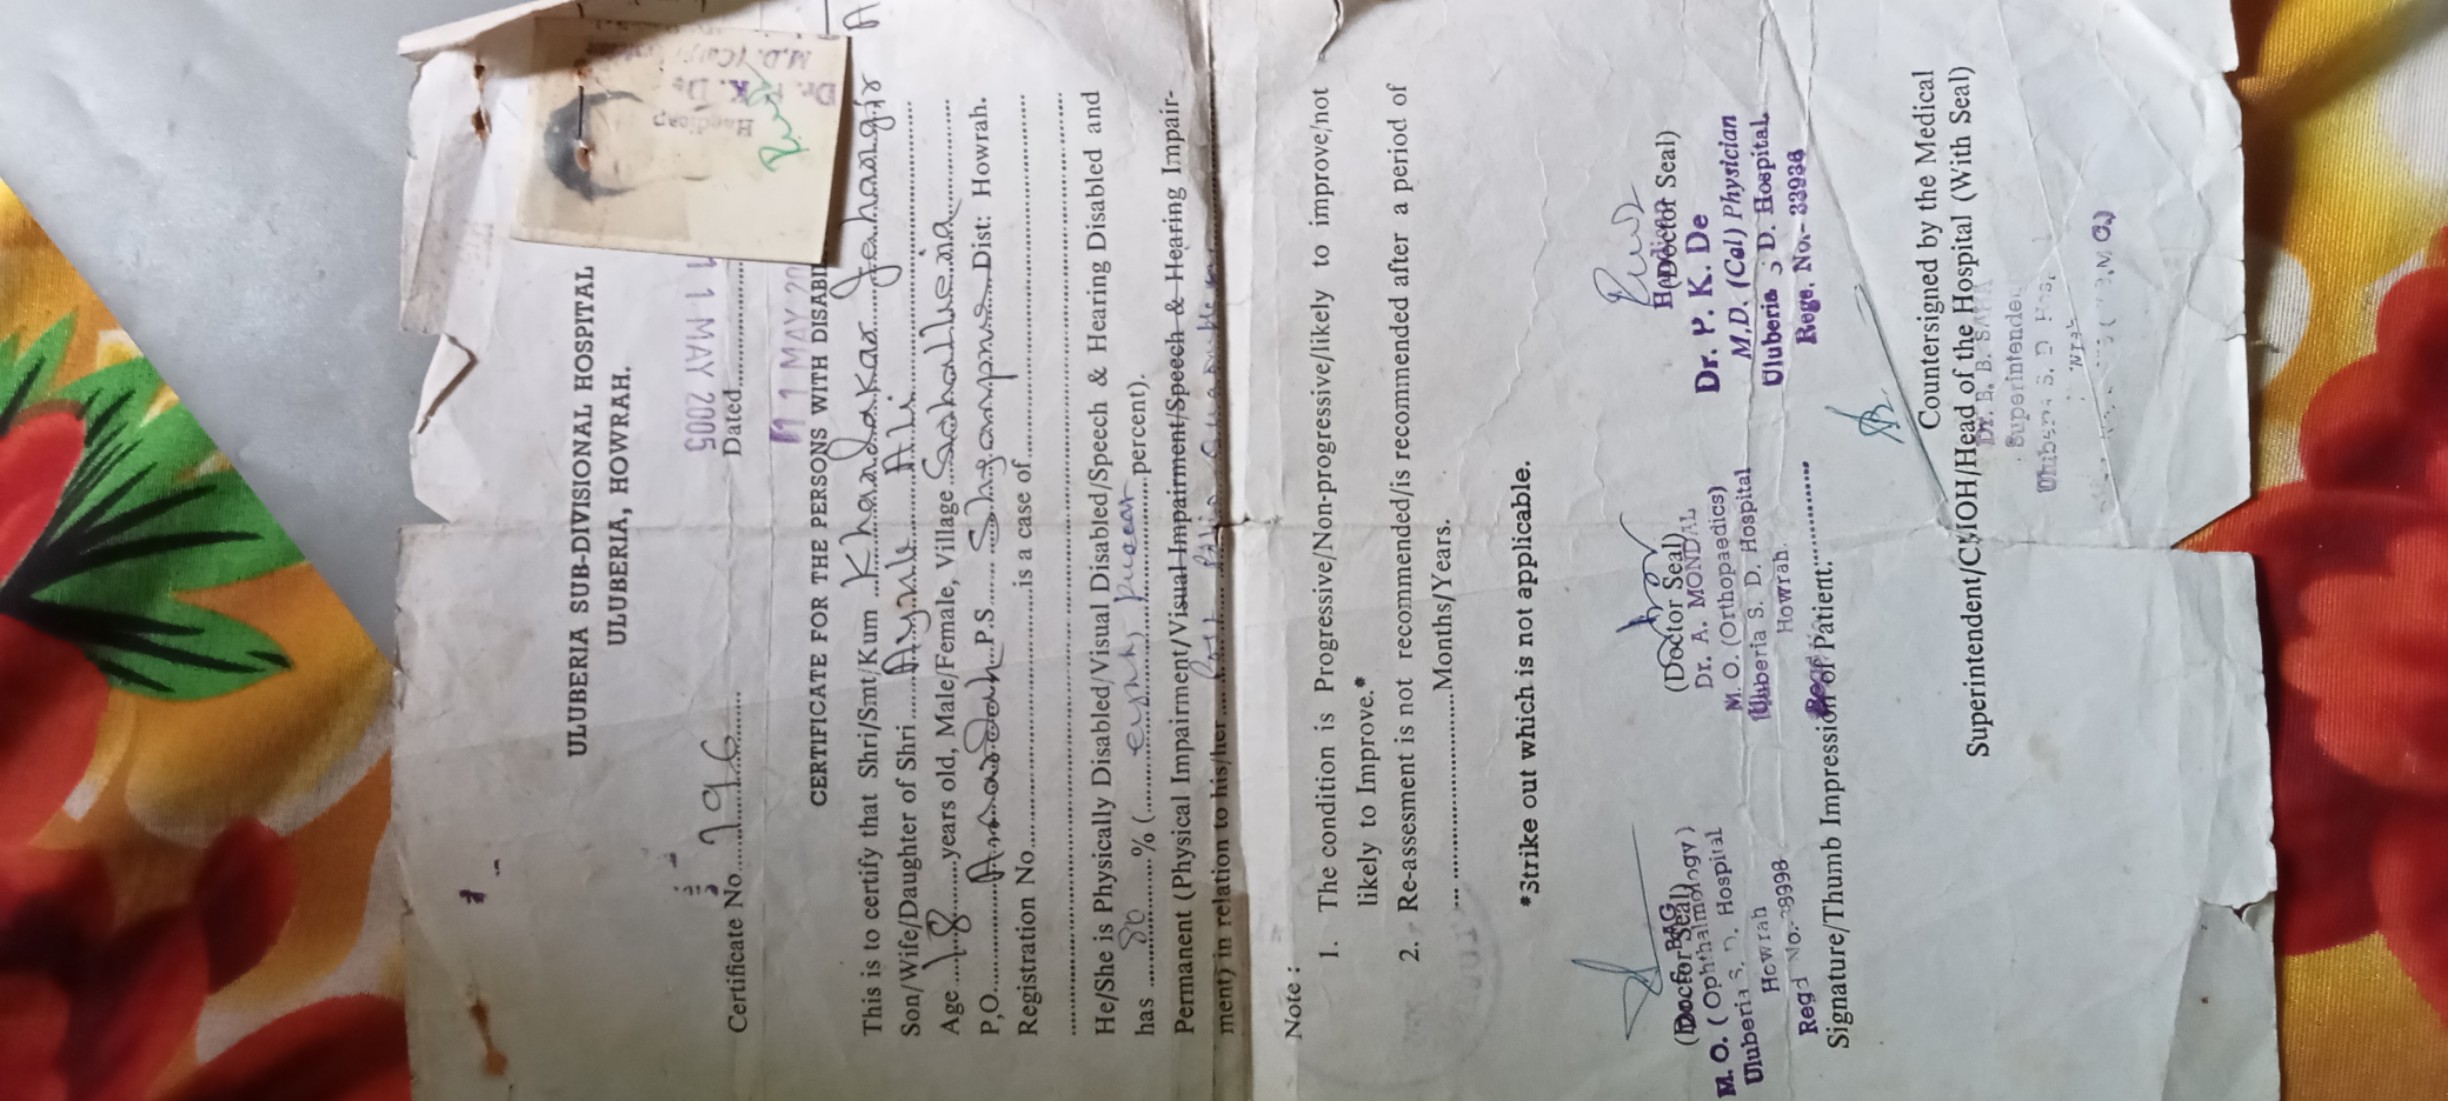 ULUBERIA SUB-DIVISIONAL HOSPITAL
ULUBERIA, HOWRAH.
Certificate No. 796
11 MAY 2005
Dated
11 MAY 20
CERTIFICATE FOR THE PERSONS WITH DISABI
This is to certify that Shri/Smt/Kum Khandakar Jehangir A
Son/Wife/Daughter of Shri Ayub Ali
Age 18 years old, Male/Female, Village
P.O. P.S. Shyampur Dist: Howrah.
Registration No. is a case of
He/She is Physically Disabled/Visual Disabled/Speech & Hearing Disabled and
has 80 % ( eighty percent).
Permanent (Physical Impairment/Visual Impairment/Speech & Hearing Impair-
ment) in relation to his/her Post Polio
Note :
1. The condition is Progressive/Non-progressive/likely to improve/not
likely to Improve.*
2. Re-assesment is not recommended/is recommended after a period of
Months/Years.
*Strike out which is not applicable.
(Doctor Seal)
BAG
M. O. ( Ophthalmology )
Uluberia S. D. Hospital
Howrah
Regd No.
(Doctor Seal)
Dr. A. MONDAL
M. O. (Orthopaedics)
Uluberia S. D. Hospital
Howrah.
(Doctor Seal)
Handicap
Dr. P. K. De
M.D. (Cal) Physician
Uluberia S. D. Hospital
Rege. No.- 33936
Signature/Thumb Impression of Patient:
Countersigned by the Medical
Superintendent/CMOH/Head of the Hospital (With Seal)
Dr. B. B.
Superintenden
S. D. Hos
Handicap
Dr. P. K. De
M.D. (Cal)